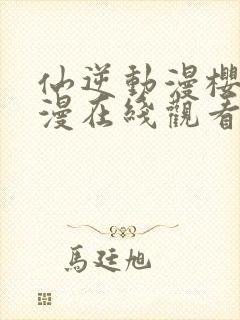 仙逆動漫櫻
漫在綫觀看
馬廷旭